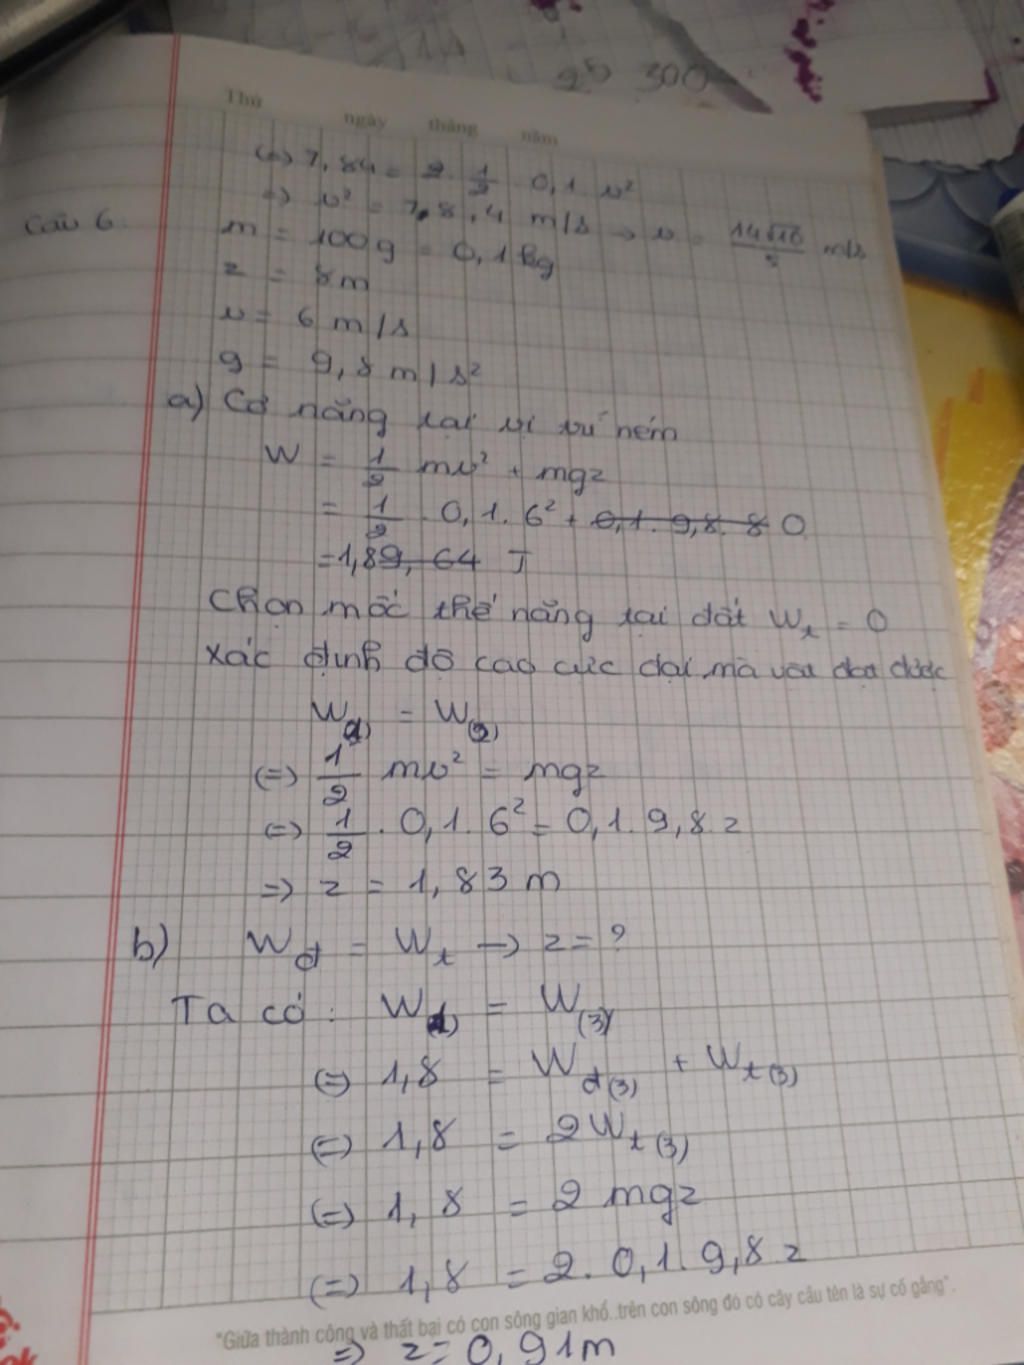 95 300
Thứ ngày tháng năm
(=) 7,84 = 2. 1/2 0,1. v²
=) v² = 7,8,4 m/s → v = 14√10/5 m/s
Câu 6
m = 100g = 0,1 kg
z = 8m
v = 6 m/s
g = 9,8 m/s²
a) Cơ năng tại vị trí ném
W = 1/2 mv² + mgz
= 1/2 . 0,1. 6² + 0,1. 9,8. 8 0
= 1,89,64 J
Chọn mốc thế năng tại đất Wt = 0
Xác định độ cao cực đại mà vật đạt được
W(1) = W(2)
(=) 1/2 mv² = mgz
(=) 1/2 . 0,1. 6² = 0,1. 9,8 z
=) z = 1,83 m
b) Wđ = Wt → z = ?
Ta có : W(1) = W(3)
(=) 1,8 = Wđ(3) + Wt(3)
(=) 1,8 = 2Wt(3)
(=) 1,8 = 2 mgz
(=) 1,8 = 2. 0,1. 9,8 z
"Giữa thành công và thất bại có con sông gian khổ..trên con sông đó có cây cầu tên là sự cố gắng".
=) z = 0,91m